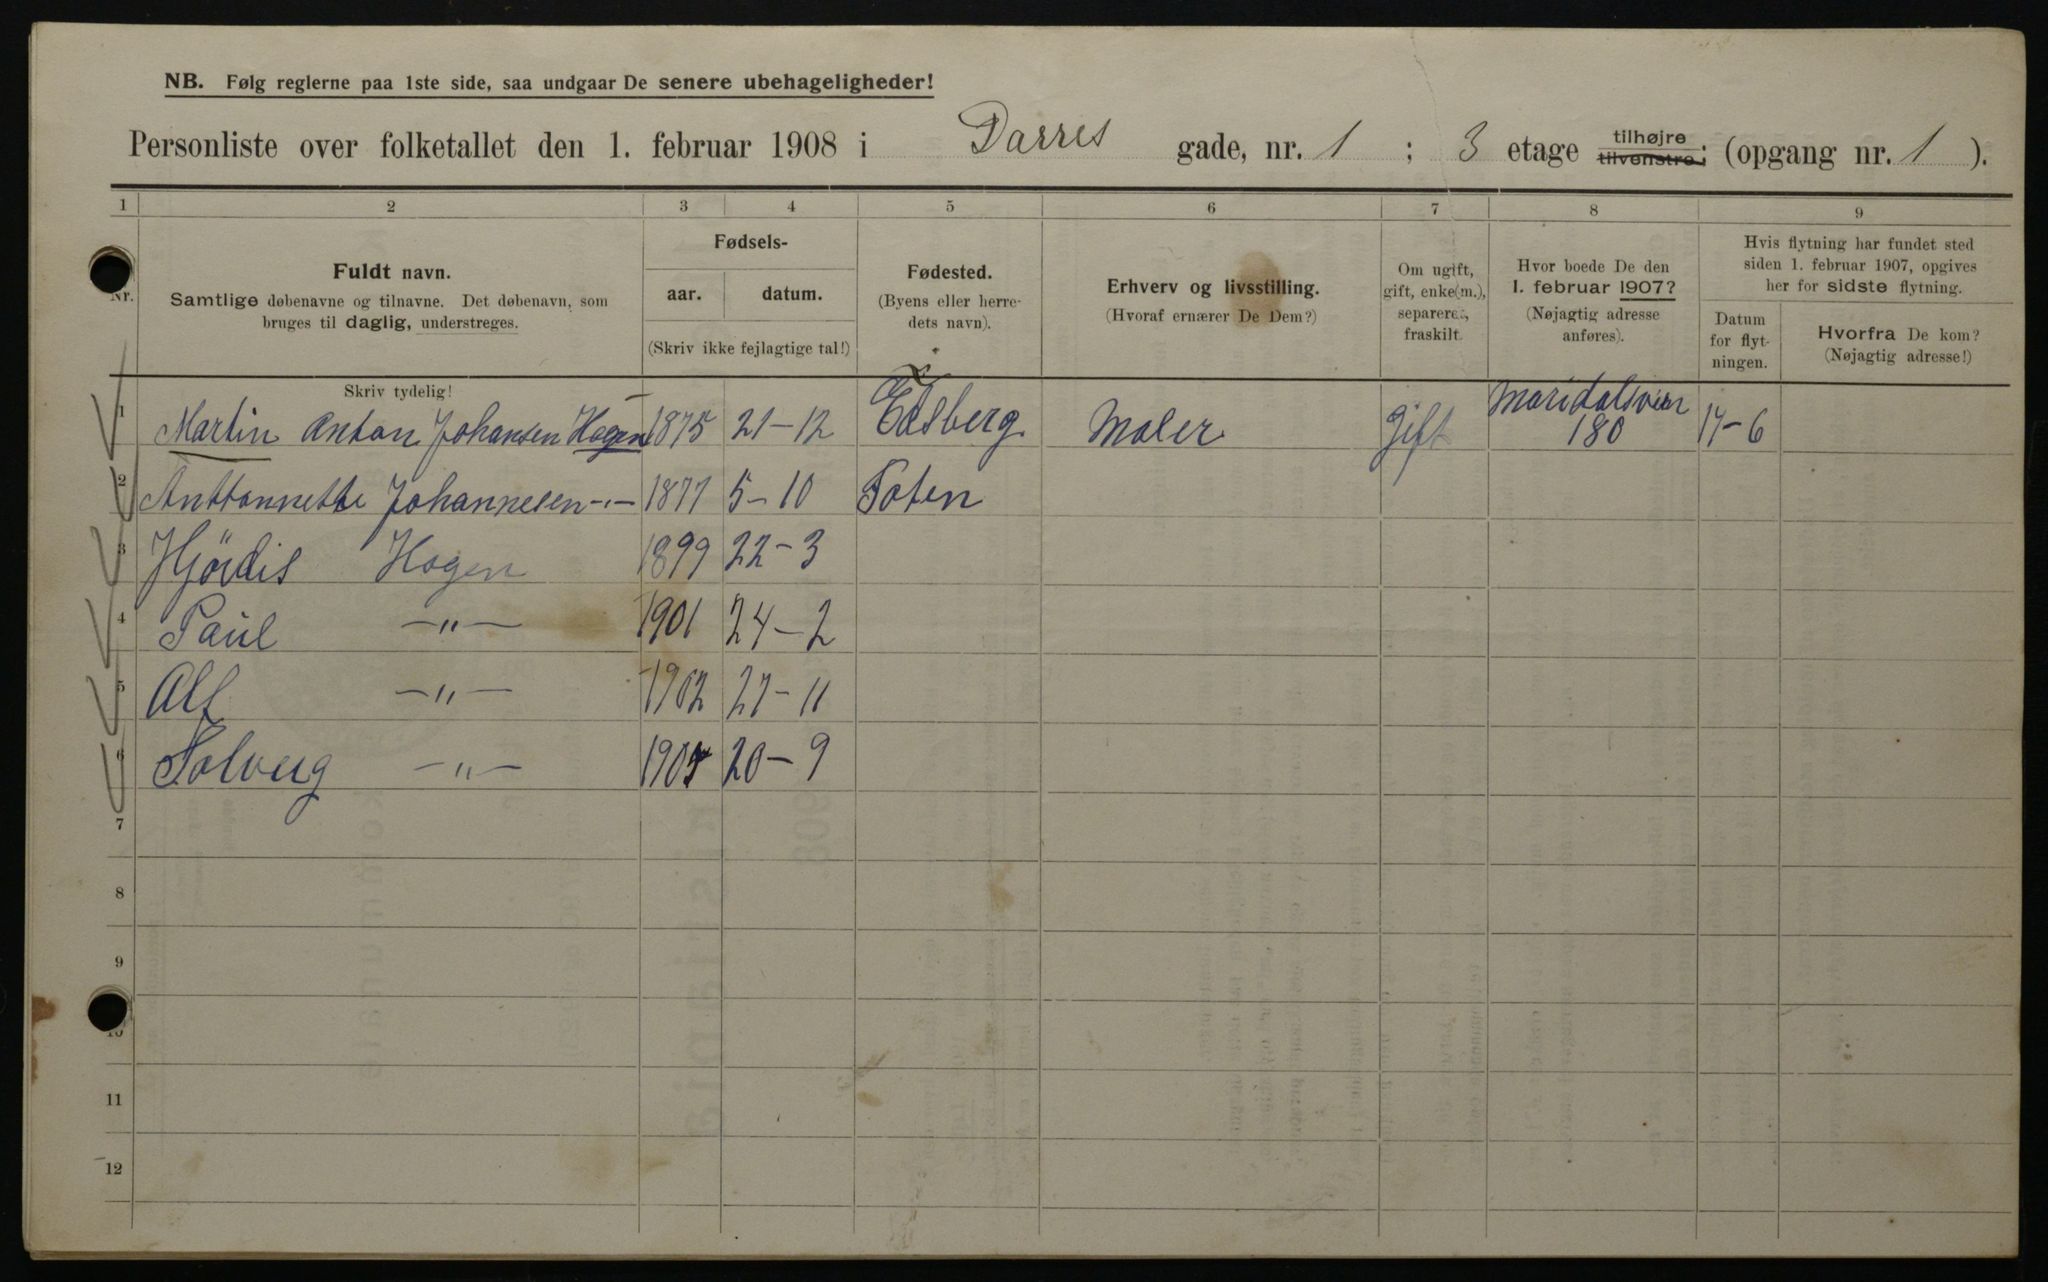 NB. Følg reglerne paa 1ste side, saa undgaar De senere ubehageligheder!
Personliste over folketallet den 1. februar 1908 i Darres gade, nr. 1 ; 3 etage tilhøjre tilvenstre; (opgang nr. 1 ).
1 2 3 4 5 6 7 8 9
Nr.
Fuldt navn.
Samtlige døbenavne og tilnavne. Det døbenavn, som
bruges til daglig, understreges.
Fødsels-
aar. datum.
(Skriv ikke fejlagtige tal!)
Fødested.
(Byens eller herre-
dets navn).
Erhverv og livsstilling.
(Hvoraf ernærer De Dem?)
Om ugift,
gift, enke(m.),
separeret,
fraskilt.
Hvor boede De den
1. februar 1907?
(Nøjagtig adresse
anføres).
Hvis flytning har fundet sted
siden 1. februar 1907, opgives
her for sidste flytning.
Datum
for flyt-
ningen.
Hvorfra De kom?
(Nøjagtig adresse!)
Skriv tydelig!
1 Martin Anton Johansen Hagen 1875 21-12 Edsberg Maler gift Maridalsveien 180 17-6
2 Anttonnette Johannesen -"- 1877 5-10 Toten
3 Hjördis Hagen 1899 22-3
4 Paul -"- 1901 24-2
5 Alf -"- 1902 27-11
6 Solveig -"- 1905 20-9
7
8
9
10
11
12